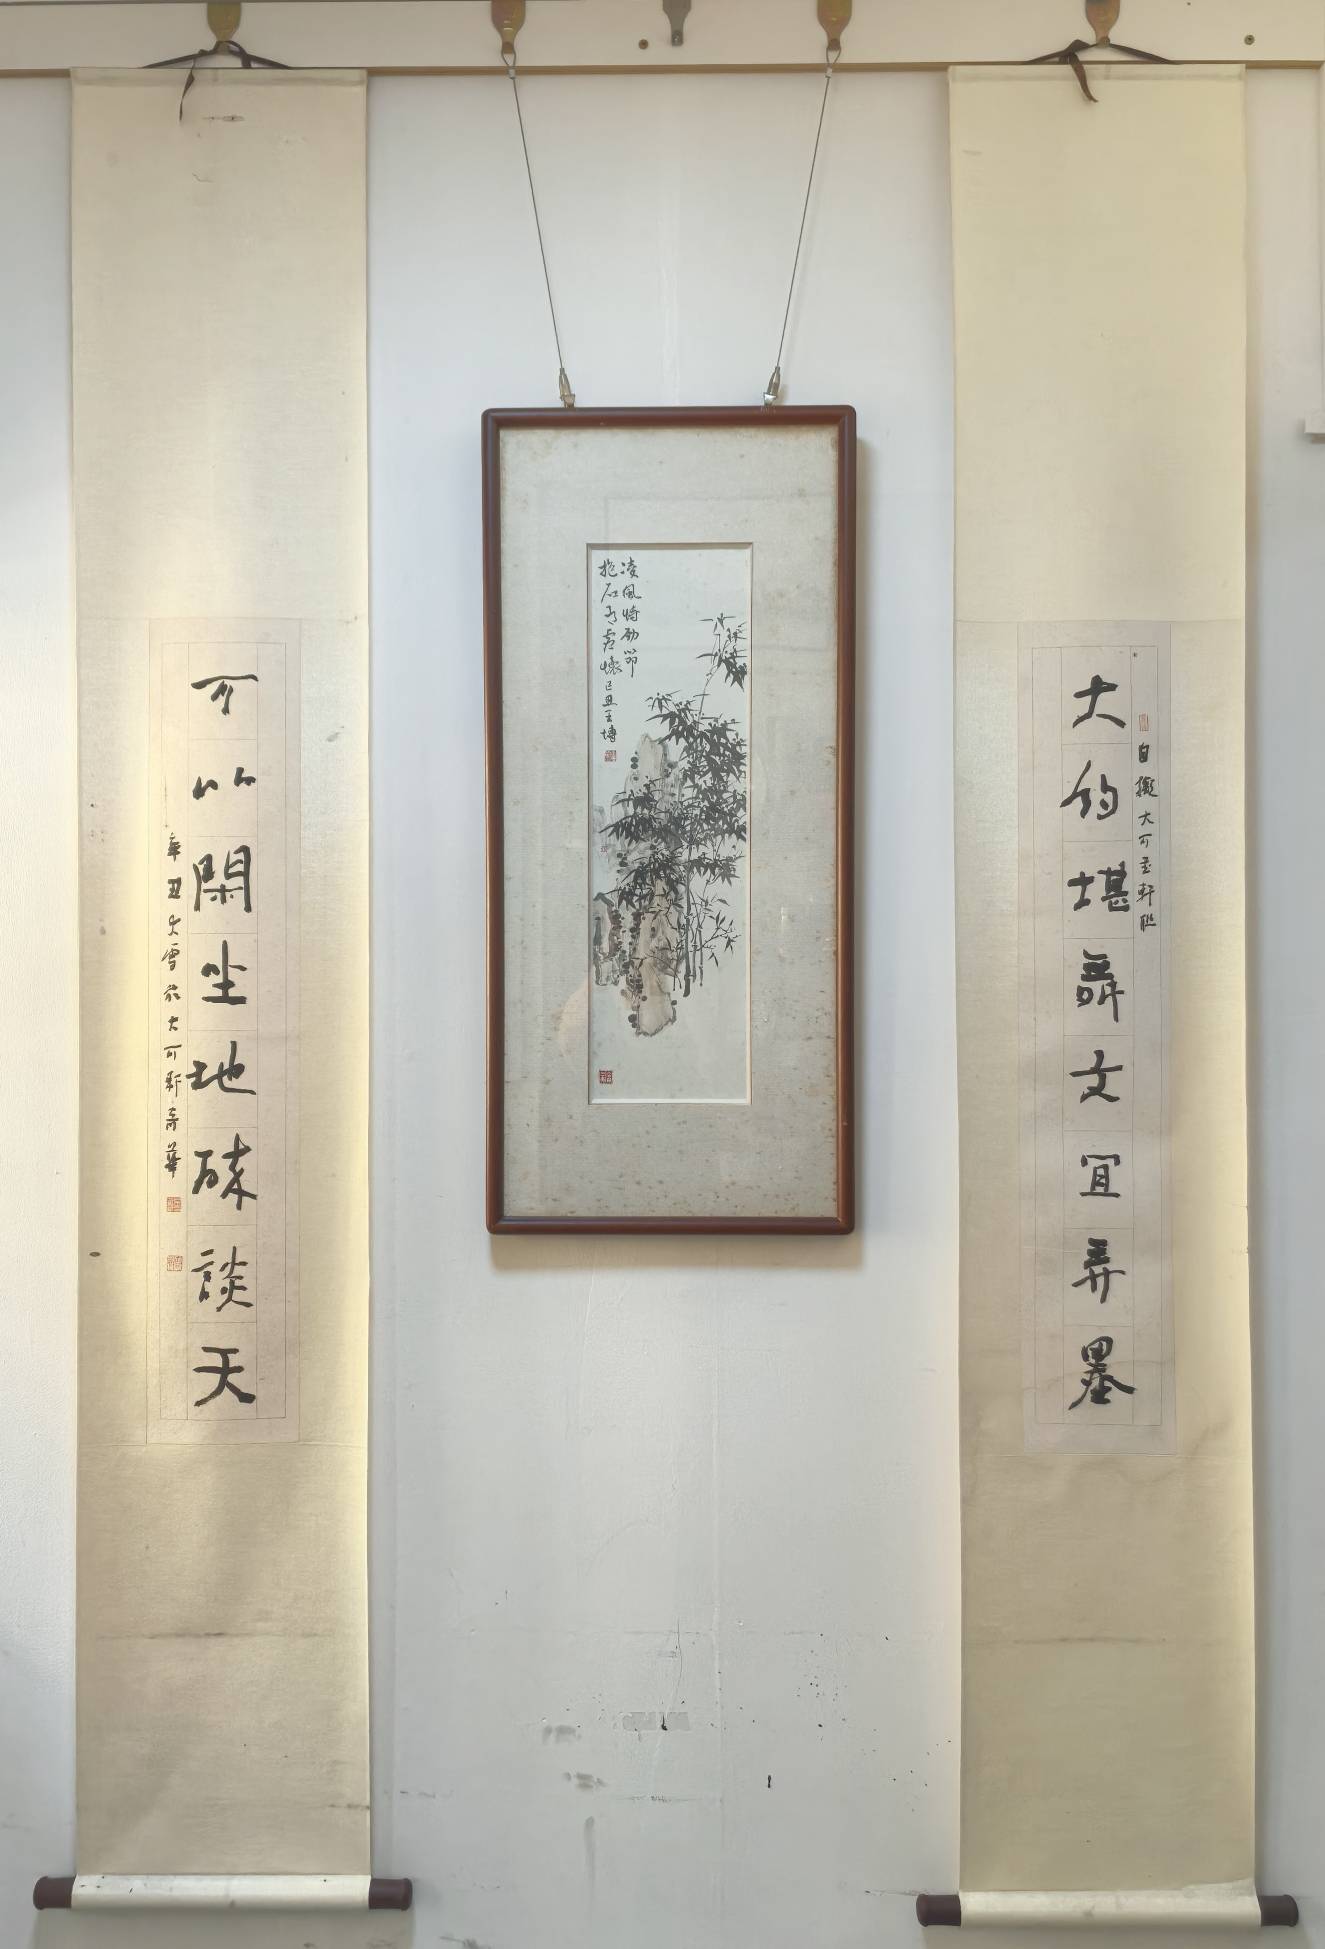 大約堪舞文宜弄墨
自擬大可至軒聯
凌風將勁節
抱石有虛懷己丑王博
可以閑坐地 談天
辛丑大雪於大可軒奇華